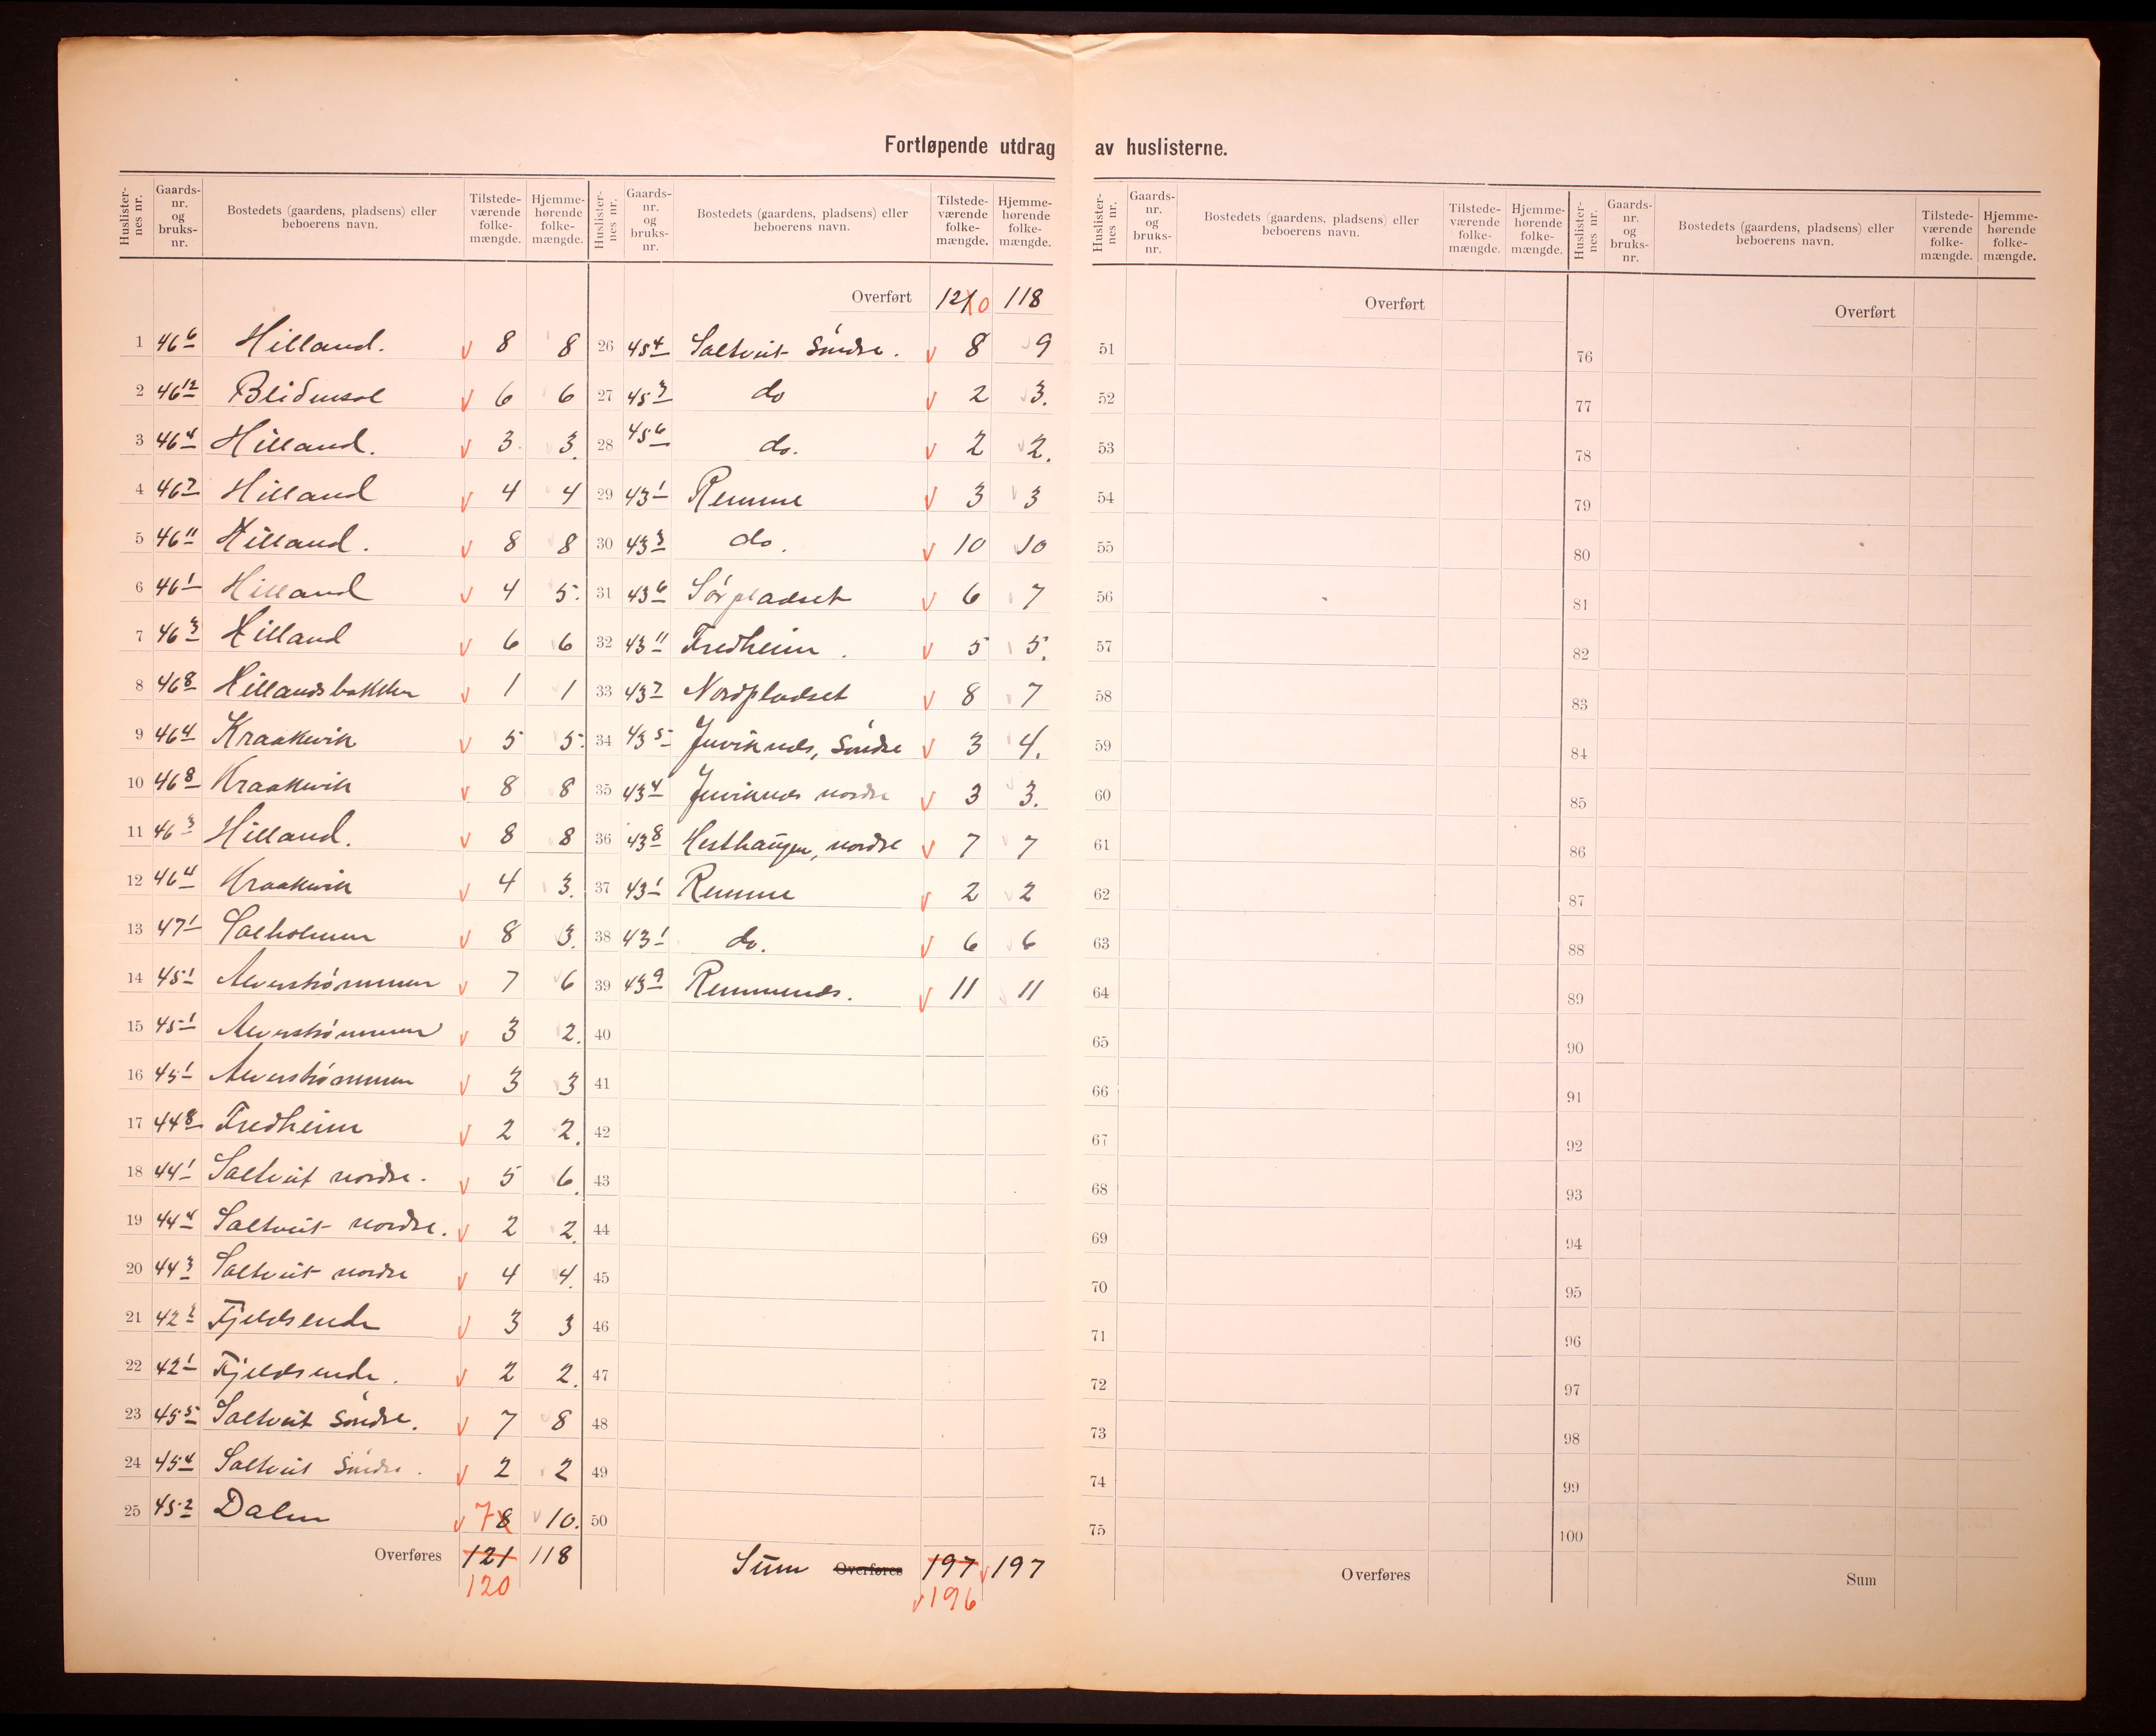 Fortløpende utdrag av huslisterne.
Huslisternes nr. Gaards-nr. og bruks-nr. Bostedets (gaardens, pladsens) eller beboerens navn. Tilstede-værende folke-mængde. Hjemme-hørende folke-mængde.
1 46 6 Hilland. 8 8
2 46 12 Blidensol 6 6
3 46 4 Hilland. 3 3.
4 46 7 Hilland 4 4
5 46 11 Hilland. 8 8
6 46 1 Hilland 4 5.
7 46 3 Hilland 6 6
8 46 8 Hillandsbakken 1 1
9 46 4 Kraakevik 5 5.
10 46 8 Kraakevik 8 8
11 46 3 Hilland. 8 8
12 46 4 Kraakevik 4 3.
13 47 1 8 3.
14 45 1 Alverstrømmen 7 6
15 45 1 Alverstrømmen 3 2.
16 45 1 Alverstrømmen 3 3
17 44 8 Fredheim 2 2.
18 44 1 Saltveit nordre. 5 6.
19 44 4 Saltveit nordre. 2 2.
20 44 3 Saltveit nordre 4 4.
21 42 2 Fjeldsende 3 3
22 42 1 Fjeldsende. 2 2.
23 45 5 Saltveit Søndre. 7 8
24 45 4 Saltveit Søndre. 2 2
25 45 2 Dalen 7 8 10.
Overføres 121 118
120
Huslisternes nr. Gaards-nr. og bruks-nr. Bostedets (gaardens, pladsens) eller beboerens navn. Tilstede-værende folke-mængde. Hjemme-hørende folke-mængde.
Overført 121 0 118
26 45 4 Saltveit Søndre. 8 9
27 45 3 do 2 3.
28 45 6 do. 2 2.
29 43 1 Remme 3 3
30 43 3 do. 10 10
31 43 6 Sørpladset 6 7
32 43 11 Fredheim. 5 5.
33 43 7 Nordpladset 8 7
34 43 5 Juviknes, Søndre 3 4.
35 43 4 Juviknes nordre 3 3.
36 43 8 Hesthaugen, nordre 7 7
37 43 1 Remme 2 2
38 43 1 do. 6 6
39 43 9 Remmenes. 11 11
40
41
42
43
44
45
46
47
48
49
50
Sum Overføres 197 197
196
Huslisternes nr. Gaards-nr. og bruks-nr. Bostedets (gaardens, pladsens) eller beboerens navn. Tilstede-værende folke-mængde. Hjemme-hørende folke-mængde.
Overført
51
52
53
54
55
56
57
58
59
60
61
62
63
64
65
66
67
68
69
70
71
72
73
74
75
Overføres
Huslisternes nr. Gaards-nr. og bruks-nr. Bostedets (gaardens, pladsens) eller beboerens navn. Tilstede-værende folke-mængde. Hjemme-hørende folke-mængde.
Overført
76
77
78
79
80
81
82
83
84
85
86
87
88
89
90
91
92
93
94
95
96
97
98
99
100
Sum